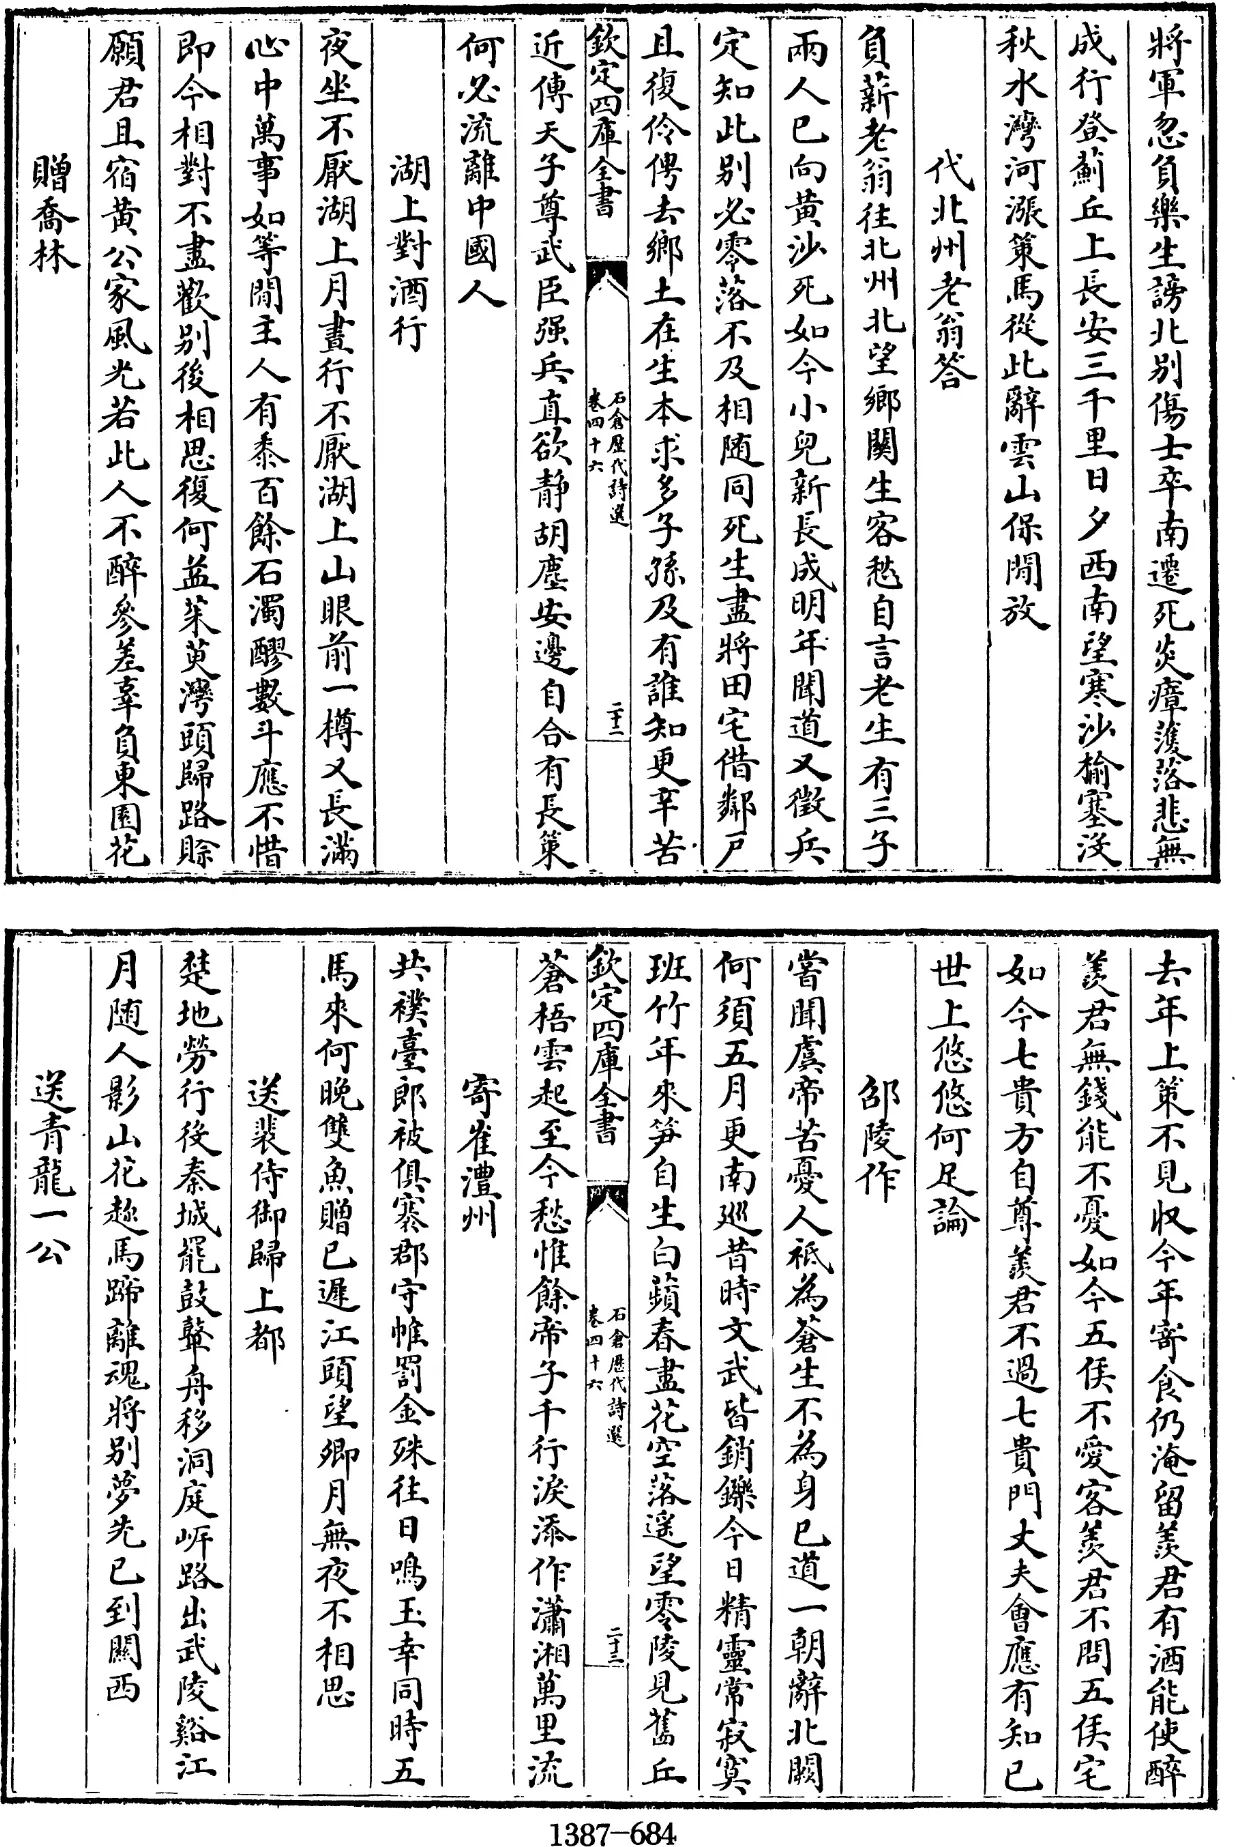 將軍忽負樂生謗北别傷士卒南遷死炎瘴濩落悲無
成行登薊丘上長安三千里日夕西南望寒沙榆塞没
秋水灣河漲策馬從此辭雲山保閒放
代北州老翁答
負薪老翁往北州北望鄉關生客愁自言老生有三子
兩人已向黄沙死如今小兒新長成明年聞道又徵兵
定知此别必零落不及相随同死生盡將田宅借鄰戸
且復伶俜去鄉土在生本求多子孫及有誰知更辛苦
欽定四庫全書
石倉歷代詩選
卷四十六
二十二
近傳天子尊武臣强兵直欲静胡塵安邊自合有長策
何必流離中國人
湖上對酒行
夜坐不厭湖上月晝行不厭湖上山眼前一樽又長滿
心中萬事如等閒主人有黍百餘石濁醪數斗應不惜
即今相對不盡歡别後相思復何益茱萸灣頭歸路賒
願君且宿黄公家風光若此人不醉參差辜負東園花
贈喬林
去年上策不見收今年寄食仍淹留羨君有酒能使醉
羨君無錢能不憂如今五侯不愛客羨君不問五侯宅
如今七貴方自尊羨君不過七貴門丈夫會應有知已
世上悠悠何足論
邵陵作
嘗聞虞帝苦憂人祗為蒼生不為身已道一朝辭北闕
何須五月更南巡昔時文武皆銷鑠今日精靈常寂寞
班竹年來笋自生白蘋春盡花空落遥望零陵見舊丘
欽定四庫全書
石倉歷代詩選
卷四十六
二十三
蒼梧雲起至今愁惟餘帝子千行淚添作瀟湘萬里流
寄崔澧州
共襆臺郎被俱褰郡守帷罰金殊往日鳴玉幸同時五
馬來何晚雙魚贈已遲江頭望鄉月無夜不相思
送裴侍御歸上都
楚地勞行役秦城罷鼓鼙舟移洞庭岍路出武陵谿江
月随人影山花趂馬蹄離魂將别夢先已到關西
送青龍一公
1387-684